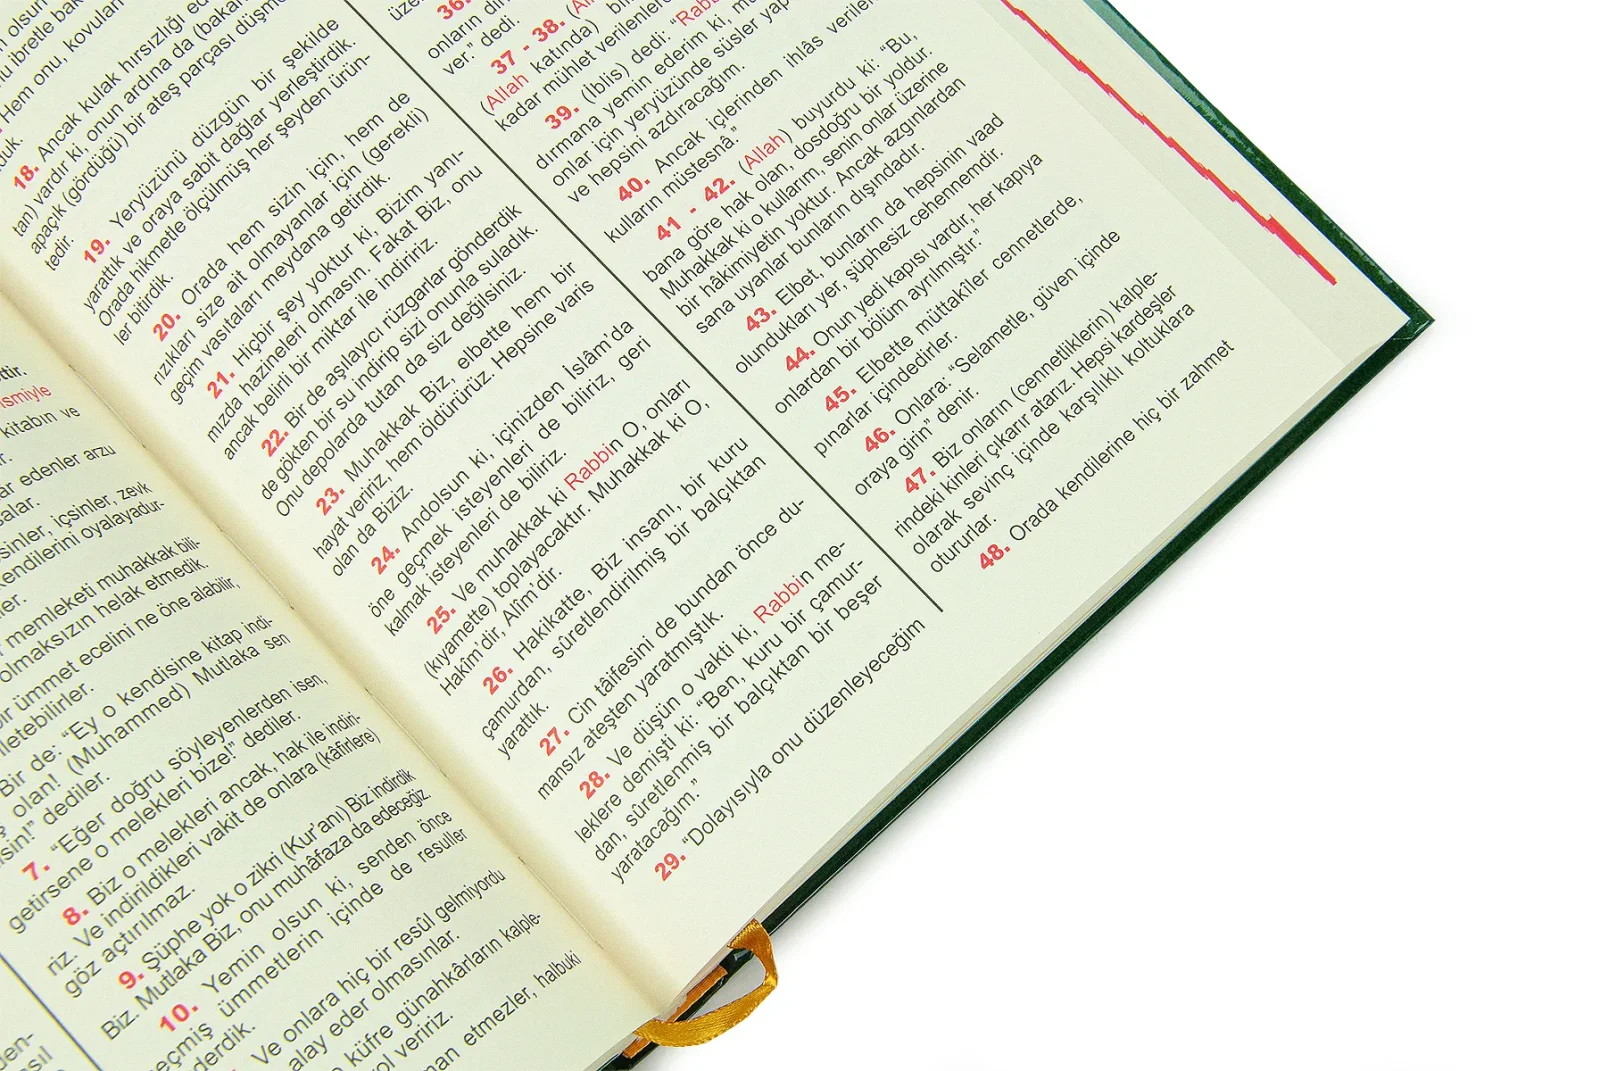 ttir.
ismiyle
kitabın ve
r.
ar edenler arzu
salar.
sinler, içsinler, zevk
kendilerini oyalayadur-
ler.
r memleketi muhakkak bili-
olmaksızın helak etmedik.
ir ümmet ecelini ne öne alabilir,
iletebilirler.
Bir de: “Ey o kendisine kitap indi-
olan! (Muhammed) Mutlaka sen
sin!” dediler.
7. “Eğer doğru söyleyenlerden isen,
getirsene o melekleri bize!” dediler.
8. Biz o melekleri ancak, hak ile indiri-
riz. Ve indirildikleri vakit de onlara (kâfirlere)
göz açtırılmaz.
9. Şüphe yok o zikri (Kur’anı) Biz indirdik
Biz. Mutlaka Biz, onu muhâfaza da edeceğiz.
10. Yemin olsun ki, senden önce
geçmiş ümmetlerin içinde de resuller
derdik.
Ve onlara hiç bir resûl gelmiyordu
alay eder olmasınlar.
küfre günahkârların kalple-
ol veririz.
man etmezler, halbuki
olsun
nu ibretle bak
Hem onu, kovulan
duk.
18. Ancak kulak hırsızlığı ed
tan) vardır ki, onun ardına da (bakan
apaçık (gördüğü) bir ateş parçası düşm
tedir.
19. Yeryüzünü düzgün bir şekilde
yarattık ve oraya sabit dağlar yerleştirdik.
Orada hikmetle ölçülmüş her şeyden ürün-
ler bitirdik.
20. Orada hem sizin için, hem de
rızıkları size ait olmayanlar için (gerekli)
geçim vasıtaları meydana getirdik.
21. Hiçbir şey yoktur ki, Bizim yanı-
mızda hazineleri olmasın. Fakat Biz, onu
ancak belirli bir miktar ile indiririz.
22. Bir de aşılayıcı rüzgarlar gönderdik
de gökten bir su indirip sizi onunla suladık.
Onu depolarda tutan da siz değilsiniz.
23. Muhakkak Biz, elbette hem bir
hayat veririz, hem öldürürüz. Hepsine varis
olan da Biziz.
24. Andolsun ki, içinizden İslâm’da
öne geçmek isteyenleri de biliriz, geri
kalmak isteyenleri de biliriz.
25. Ve muhakkak ki Rabbin O, onları
(kıyamette) toplayacaktır. Muhakkak ki O,
Hakîm’dir, Alîm’dir.
26. Hakikatte, Biz insanı, bir kuru
çamurdan, sûretlendirilmiş bir balçıktan
yarattık.
27. Cin tâifesini de bundan önce du-
mansız ateşten yaratmıştık.
28. Ve düşün o vakti ki, Rabbin me-
leklere demişti ki: “Ben, kuru bir çamur-
dan, sûretlenmiş bir balçıktan bir beşer
yaratacağım.”
29. “Dolayısıyla onu düzenleyeceğim
36.
onların diri
ver.” dedi.
37 - 38. (Al
(Allah katında) bili
kadar mühlet verilenlerd
39. (İblis) dedi: “Rabb
dırmana yemin ederim ki, mu
onlar için yeryüzünde süsler yap
ve hepsini azdıracağım.
40. Ancak içlerinden ihlâs verilen
kulların müstesnâ.”
41 - 42. (Allah) buyurdu ki: “Bu,
bana göre hak olan, dosdoğru bir yoldur.
Muhakkak ki o kullarım, senin onlar üzerine
bir hâkimiyetin yoktur. Ancak azgınlardan
sana uyanlar bunların dışındadır.
43. Elbet, bunların da hepsinin vaad
olundukları yer, şüphesiz cehennemdir.
44. Onun yedi kapısı vardır, her kapıya
onlardan bir bölüm ayrılmıştır.”
45. Elbette müttakîler cennetlerde,
pınarlar içindedirler.
46. Onlara: “Selametle, güven içinde
oraya girin” denir.
47. Biz onların (cennetliklerin) kalple-
rindeki kinleri çıkarır atarız. Hepsi kardeşler
olarak sevinç içinde karşılıklı koltuklara
otururlar.
48. Orada kendilerine hiç bir zahmet